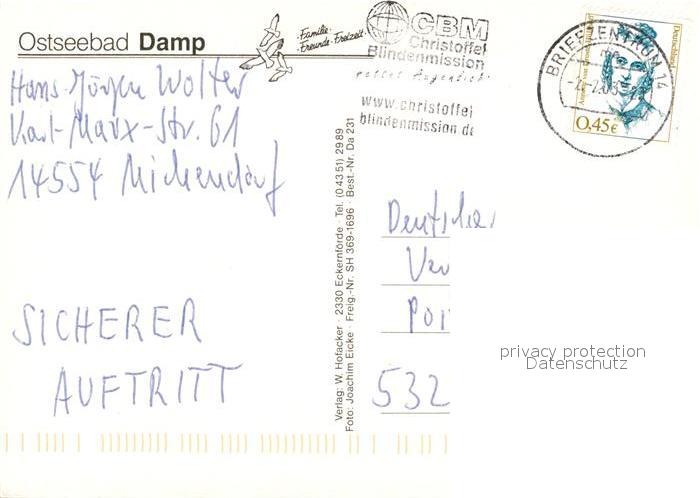 Ostseebad Damp
Familie
Freunde · Freizeit
CBM
Christoffel
Blindenmission
rettet Augenlicht
www.christoffel
blindenmission.de
BRIEFZENTRUM 14
Deutschland
0,45€
Hans-Jürgen Wolter
Karl-Marx-Str. 61
14554 Michendorf
SICHERER
AUFTRITT
Verlag: W. Hofacker · 2330 Eckernförde · Tel. (04351) 2989
Foto: Joachim Eicke · Freig.-Nr. SH 369-1696 · Best.-Nr. Da 231
Deutscher
Ver
Pos
532
privacy protection
Datenschutz